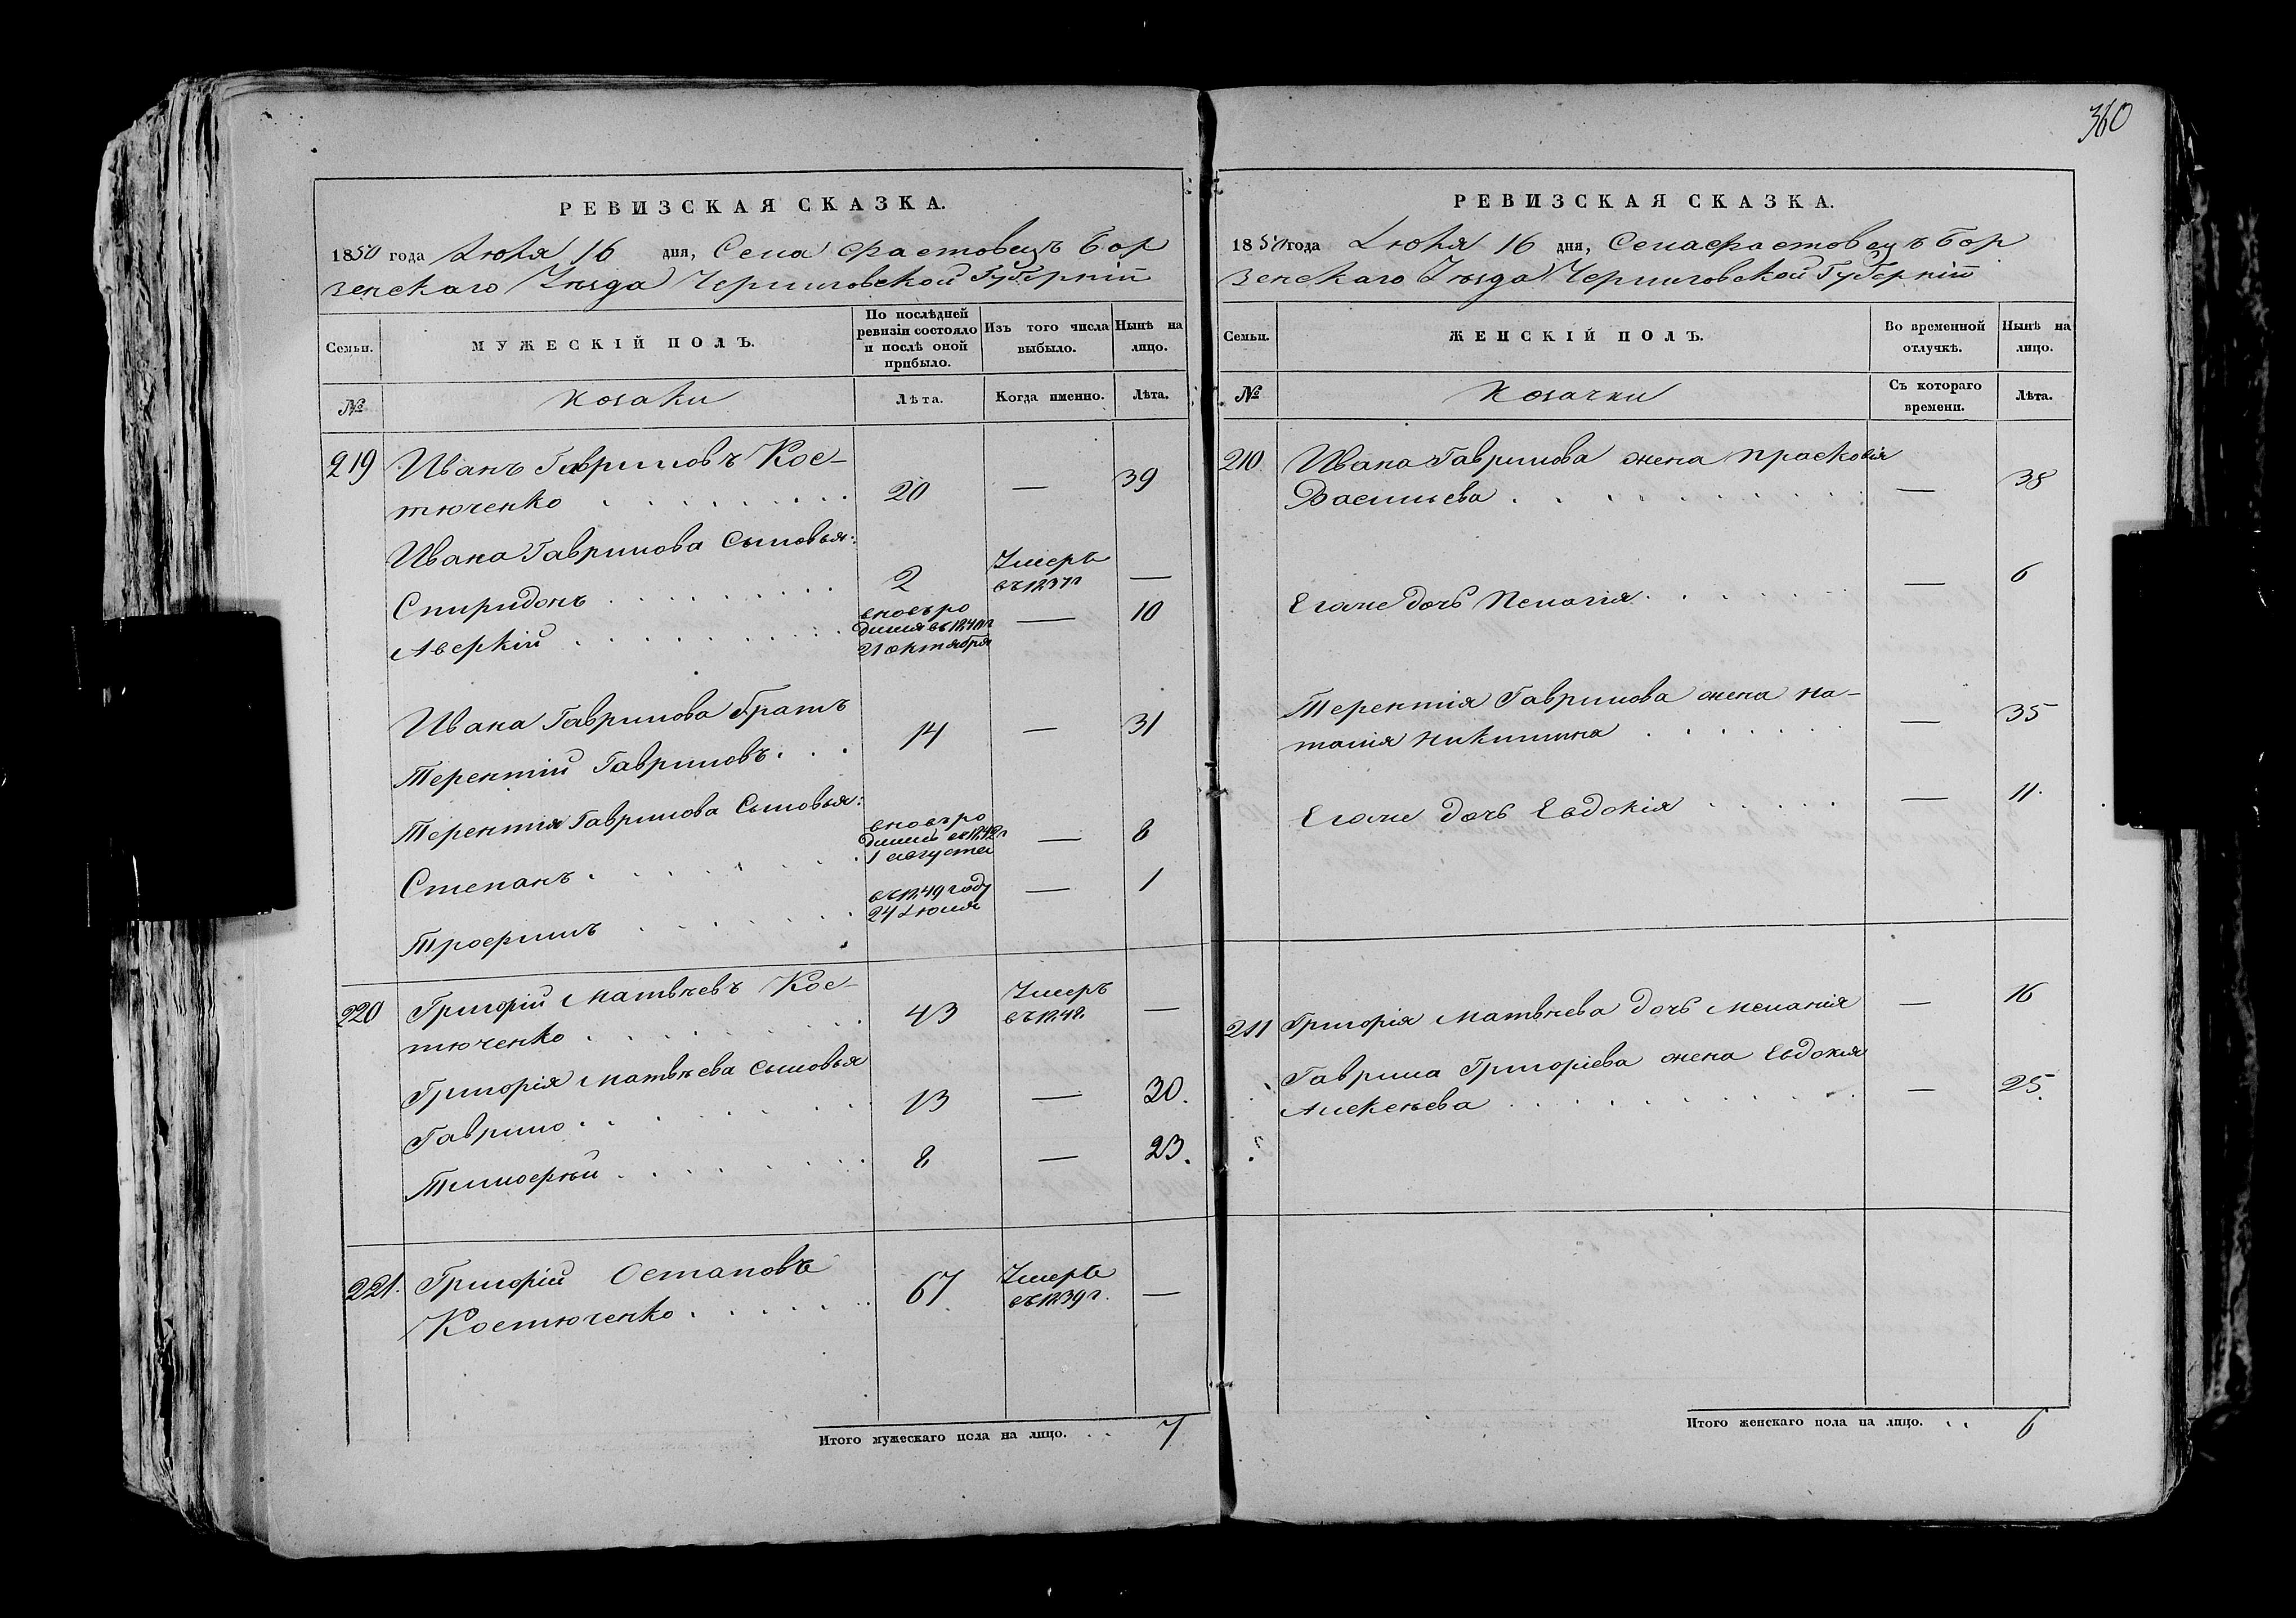 360
РЕВИЗСКАЯ СКАЗКА.
1850 года Іюля 16 дня, Села Фастовецъ Бор
зенскаго Уѣзда Черниговской Губерніи
Семьи.
МУЖЕСКІЙ ПОЛЪ.
По послѣдней
ревизіи состояло
и послѣ оной
прибыло.
Изъ того числа
выбыло.
Нынѣ на
лицо.
№
Козаки
Лѣта.
Когда именно.
Лѣта.
219 Иванъ Гавриловъ Кос-
тюченко 20 — 39
Ивана Гаврилова Сыновья:
Спиридонъ 2 Умеръ
въ 1837г —
Аверкій вновь ро
дился въ 1840г
21 октября — 10
Ивана Гаврилова братъ
Терентій Гавриловъ 14 — 31
Терентія Гаврилова Сыновья:
Степанъ вновь ро
дился въ 1842г
1 августа — 8
Трофимъ въ 1849 году
24 Іюля — 1
220 Григорій Матвѣевъ Кос-
тюченко 43 Умеръ
въ 1848. —
Григорія Матвѣева сыновья
Гаврило 13 — 30.
Тимофѣй 8 — 23.
221. Григорій Остаповъ
Костюченко 67 Умеръ
въ 1839г. —
Итого мужескаго пола на лицо. 7
РЕВИЗСКАЯ СКАЗКА.
1850 года Іюля 16 дня, Села Фастовецъ Бор
зенскаго Уѣзда Черниговской Губерніи
Семьи.
ЖЕНСКІЙ ПОЛЪ.
Во временной
отлучкѣ.
Нынѣ на
лицо.
№
Козачки
Съ котораго
времени.
Лѣта.
210 Ивана Гаврилова жена Прасковія
Васильева — 38
Егоже дочь Пелагія — 6
Терентія Гаврилова жена На-
талія Никитина — 35
Егоже дочь Евдокія — 11.
211 Григорія Матвѣева дочь Меланія — 16
Гаврила Григоріева жена Евдокія
Алексѣева — 25.
Итого женскаго пола на лицо. 6